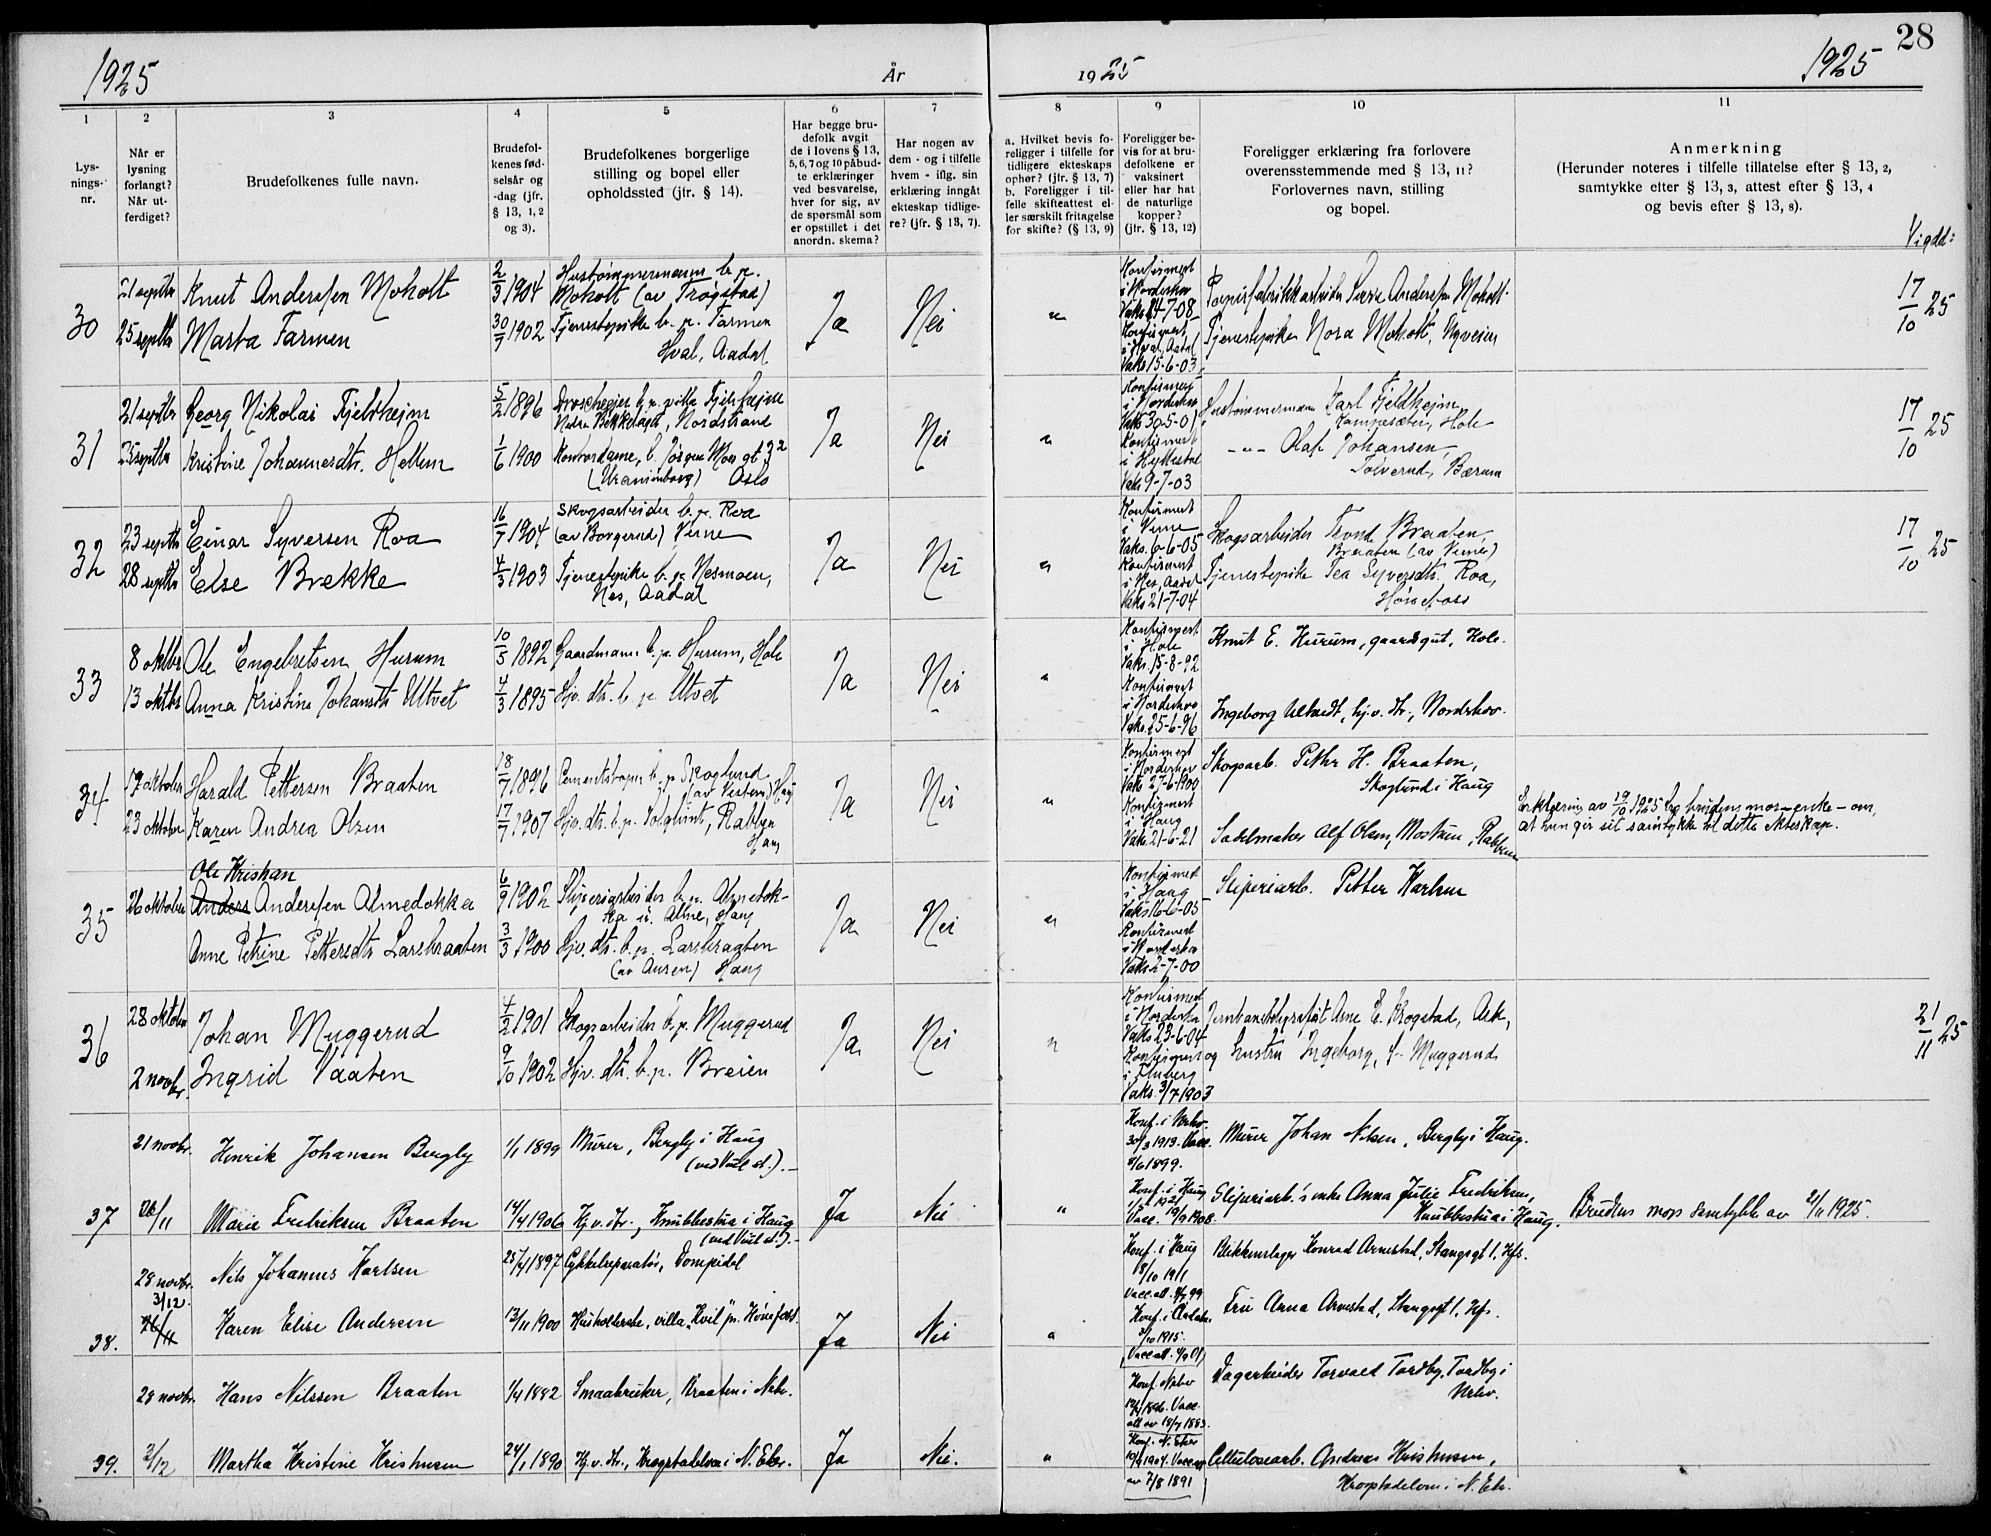 28
1925
År
1925
1925
1
2
3
4
5
6
7
8
9
10
11
Lys-
nings-
nr.
Når er
lysning
forlangt?
Når ut-
ferdiget?
Brudefolkenes fulle navn.
Brudefol-
kenes fød-
selsår og
-dag (jfr.
§ 13, 1, 2
og 3).
Brudefolkenes borgerlige
stilling og bopel eller
opholdssted (jfr. § 14).
Har begge bru-
defolk avgit
de i lovens § 13,
5, 6, 7 og 10 påbud-
te erklæringer
ved besvarelse,
hver for sig, av
de spørsmål som
er opstillet i det
anordn. skema?
Har nogen av
dem - og i tilfelle
hvem - iflg. sin
erklæring inngåt
ekteskap tidlige-
re? (jfr. § 13, 7).
a. Hvilket bevis fo-
religger i tilfelle for
tidligere ekteskaps
ophør? (jfr. § 13, 7)
b. Foreligger i til-
felle skifteattest el-
ler særskilt fritagelse
for skifte? (§ 13, 9)
Foreligger be-
vis for at bru-
defolkene er
vaksinert
eller har hat
de naturlige
kopper?
(jfr. § 13, 12)
Foreligger erklæring fra forlovere
overensstemmende med § 13, 11?
Forlovernes navn, stilling
og bopel.
Anmerkning
(Herunder noteres i tilfelle tillatelse efter § 13, 2,
samtykke efter § 13, 3, attest efter § 13, 4
og bevis efter § 13, 8).
Vigdd:
30
21 septbr
25 septbr
Knut Andersen Moholt
Marta Farmen
2/3 1904
30/7 1902
Hustømmermann b. p.
Moholt (av Trøgstad)
Tjenestepike b. p. Farmen
Hval, Aadal.
Ja
Nei
"
Konfirmert
i Norderhov
Vaks 24-7-08
Konfirmert
i Hval, Aadal
Vaks 15-6-03
Papirfabrikkarbeider Andersen Moholt
Tjenestepike Nora Moholt,
17/10 25
31
21 septbr
25 septbr
Georg Nikolai Fjeldheim
Kristine Johannesdtr. Hellem
5/2 1896
1/6 1900
b. p. villa
Bekkelaget, Nordstrand
Kontordame, b. Jørgen Moes gt 3²
(Uranienborg) Oslo
Ja
Nei
"
Konfirmert
i Norderhov
Vaks 30-5-01
Konfirmert
i Hyllestad
Vaks 9-7-03
Hustømmermann Karl Fjeldheim
Hole
-"- Olaf Johansen,
Bærum
17/10 25
32
23 septbr
28 septbr
Einar Syversen Roa
Else Brekke
16/7 1904
4/3 1903
Skogsarbeider b. p. Roa
(av Borgerud) Vime
Tjenestepike b. p. Nesmoen,
Nes, Aadal
Ja
Nei
"
Konfirmert
i Vime
Vaks. 6-6-05
Konfirmert
i Nes, Aadal
Vaks 21-7-04
Skogsarbeider Trond Braaten,
Braaten (av Vime)
Tjenestepike Tea Syversdtr. Roa,
Hønefoss
17/10 25
33
8 oktbr
13 oktbr
Ole Engebretsen Hurum
Anna Kristine Johansdtr Utvet
10/5 1892
4/3 1895
Gaardmann b. p. Hurum, Hole
Hjv. dtr. b. p. Utvet
Ja
Nei
"
Konfirmert
i Hole
Vaks. 15-8-92
Konfirmert
i Norderhov
Vaks. 25-6-96
Knut E. Hurum, gaardsgut, Hole.
Ingeborg Ultvedt, hj.v. dtr., Norderhov.
34
19 oktober
23 oktober
Harald Pettersen Braaten
Karen Andrea Olsen
18/7 1896
17/7 1907
b. p. Skoglund
(av Vestern) Haug
Hjv. dtr. b. p. Solglimt, Rabben
Haug
Ja
Nei
"
Konfirmert
i Norderhov
Vaks 27-6-1900
Konfirmert
i Haug
Vaks. 21-6-21
Skogsarb. Petter H. Braaten,
Skoglund i Haug
Sadelmaker Alf Olsen, Rabben
Erklæring av 19/10 1925 fra brudens mor - enke - om,
at hun gir sit samtykke til dette ekteskap.
35
26 oktober
Ole Kristian
Anders Andersen Almedokka
Anne Petrine Pettersdtr Larsbraaten
6/9 1902
3/3 1900
Sliperiarbeider b. p. Almedok-
ka u. Alme, Haug
Hjv. dtr. b. p. Larsbraaten
(av Auren) Haug
Ja
Nei
"
Konfirmert
i Haug
Vaks 16-6-05
Konfirmert
i Norderhov
Vaks 2-7-00
Sliperiarb. Petter Karlsen
36
28 oktober
2 novbr.
Johan Muggerud
Ingrid Vaaten
4/2 1901
9/10 1902
Skogsarbeider b. p. Muggerud
Hjv. dtr. b. p. Breien
Ja
Nei
"
Konfirmert
i Norderhov
Vaks 23-6-04
Konfirmert
i Flesberg
Vaks. 3/7 1903
Jernbanetelegrafist Arne E. Krogstad, Ask,
og hustru Ingeborg, f. Muggerud
21/11 25
37
21 novbr.
26/11
Henrik Johansen Bergby
Marie Fredriksen Braaten
1/1 1899
14/4 1906
Murer, Bergby i Haug
(ved Veel st.). -
Hj.v. dtr., Knubbestua i Haug
(ved Veel st.). -
Ja
Nei
"
Konf. i Nrhv.
30/3 1913. Vacc.
8/6 1899.
Konf. i Haug
1921
Vacc. 19/9 1908.
Murer Johan Nilsen, Bergby i Haug.
Sliperiarb.'s enke Anna Julie Fredriksen,
Knubbestua i Haug.
Brudens mors samtykke av 21/11 1925.
38.
28 novbr.
3/12.
26/11
Nils Johannes Karlsen
Karen Elise Andersen
25/4 1897
13/11 1900
Cykkelreparatør, Dompidel
Husholderske, villa "Hvil" pr. Hønefoss.
Ja
Nei
"
Konf. i Haug
8/10 1911
Vacc.att. 99
Konf. i Aadalen
3/10 1915.
Vacc.att. 4/9 01
Blikkenslager Konrad Arnestad, Stangsgt 1, Hfs.
Fru Anna Arnestad, Stangsgt 1, Hfs.
39.
28 novbr.
3/12
Hans Nilssen Braaten
Martha Kristine Kristiansen
1/4 1882
24/1 1890
Smaabruker, Braaten i Nrhv.
Hj.v. dtr., Krogstadelven i N. Eker.
Ja
Nei.
"
Konf. Nrhov
1896. Vacc.
att av 18/7 1883.
Konf. N. Eker
1904. Vacc.att
av 7/8 1891
Dagarbeider Torvald Tordby, Tordby i
Nrhv.
Cellulosearb. Andreas Kristiansen,
Krogstadelven i N. Eker.